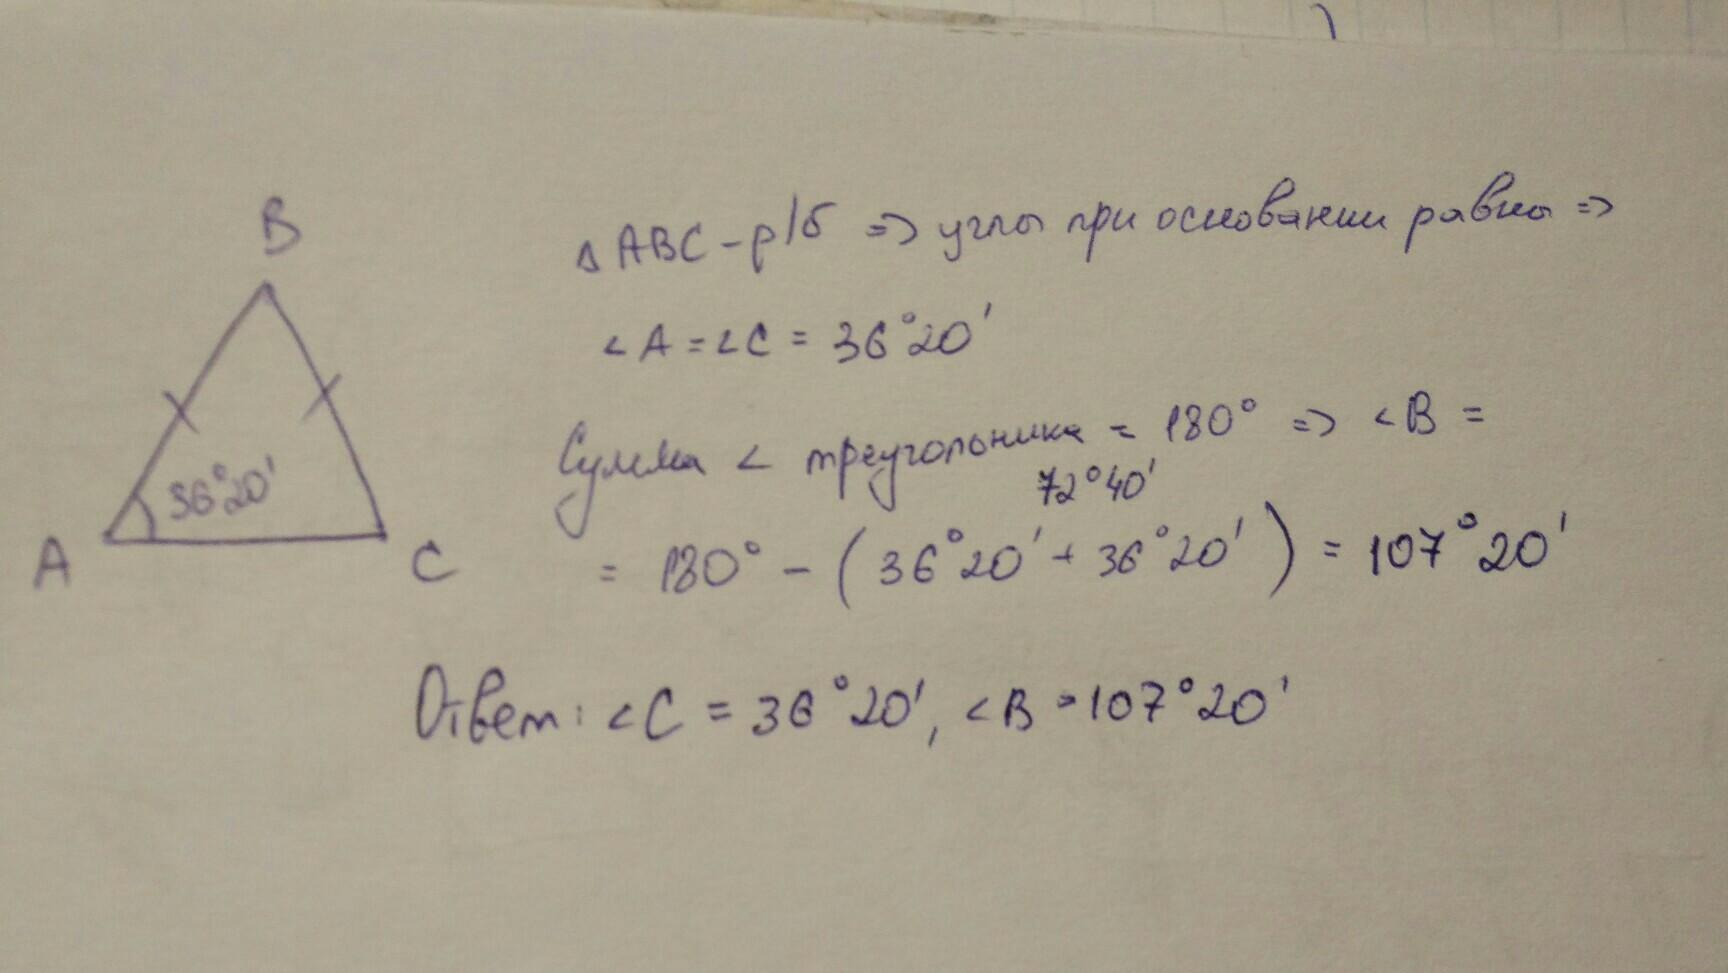 B
36°20'
A
C
∆ ABC - р/б => углы при основании равны =>
∠A = ∠C = 36°20'
Сумма ∠ треугольника = 180° => ∠B =
72°40'
= 180° - ( 36°20' + 36°20' ) = 107°20'
Ответ: ∠C = 36°20', ∠B = 107°20'